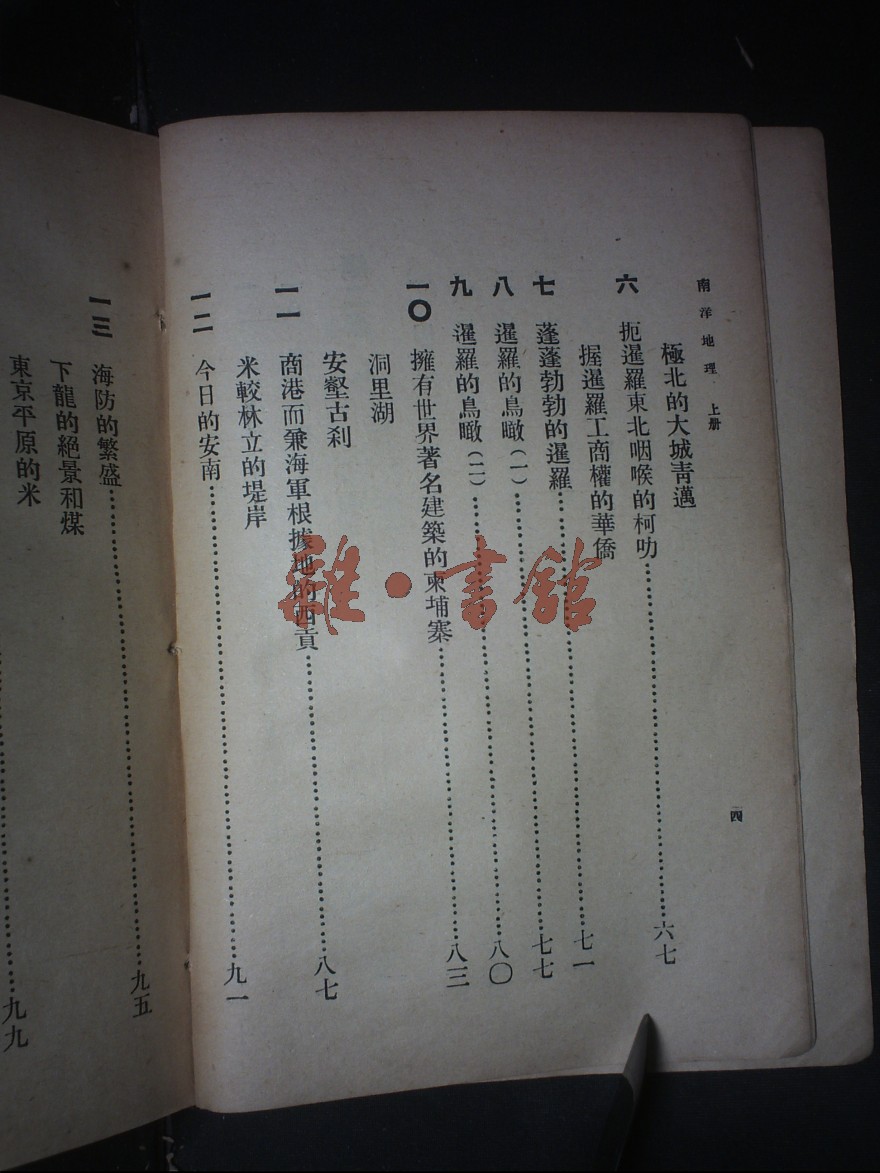 南洋地理 上册
四
極北的大城青邁
六 扼暹羅東北咽喉的柯叻……六七
握暹羅工商權的華僑
七 蓬蓬勃勃的暹羅……七一
八 暹羅的鳥瞰(一)……七七
九 暹羅的鳥瞰(二)……八〇
一〇 擁有世界著名建築的柬埔寨……八三
洞里湖
安壑古刹
一一 商港而兼海軍根據地的西貢……八七
米較林立的堤岸
一二 今日的安南……九一
一三 海防的繁盛……九五
下龍的絕景和煤
東京平原的米
……九九
雜·書館